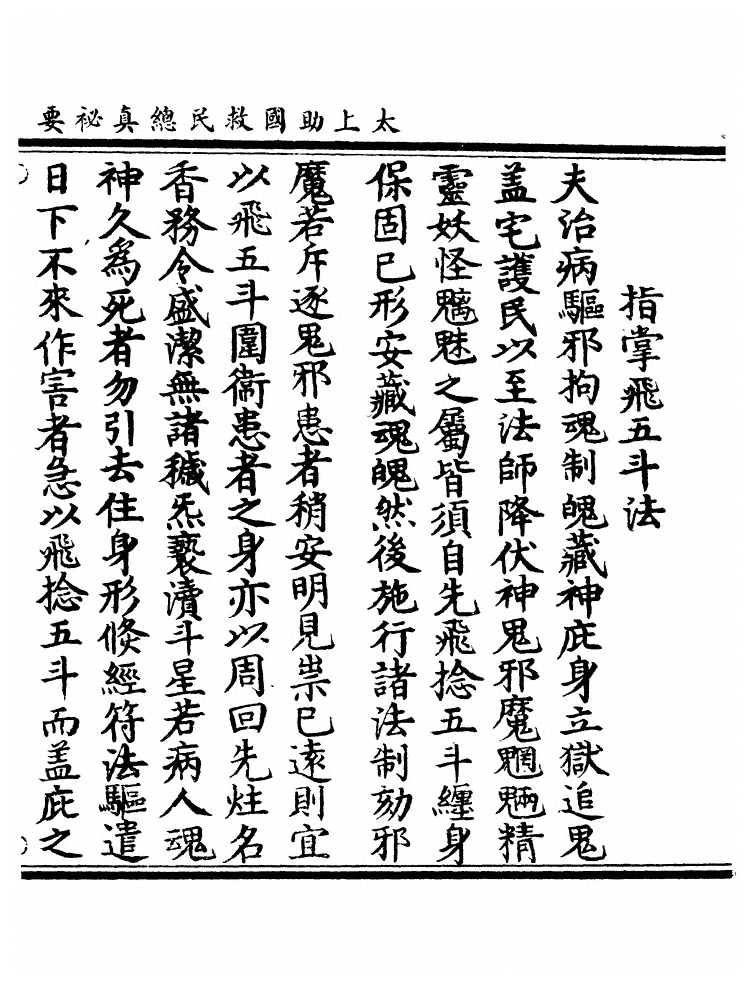 太上助國救民總真祕要
指掌飛五斗法
夫治病驅邪拘魂制魄藏神庇身立獄追鬼
盖宅護民以至法師降伏神鬼邪魔魍魎精
靈妖怪魑魅之屬皆須自先飛捻五斗纏身
保固已形安藏魂魄然後施行諸法制劾邪
魔若斥逐鬼邪患者稍安明見祟已遠則宜
以飛五斗圍衛患者之身亦以周回先炷名
香務令盛潔無諸穢炁褻瀆斗星若病人魂
神久為死者勿引去住身形倐經符法驅遣
日下不來作害者急以飛捻五斗而盖庇之